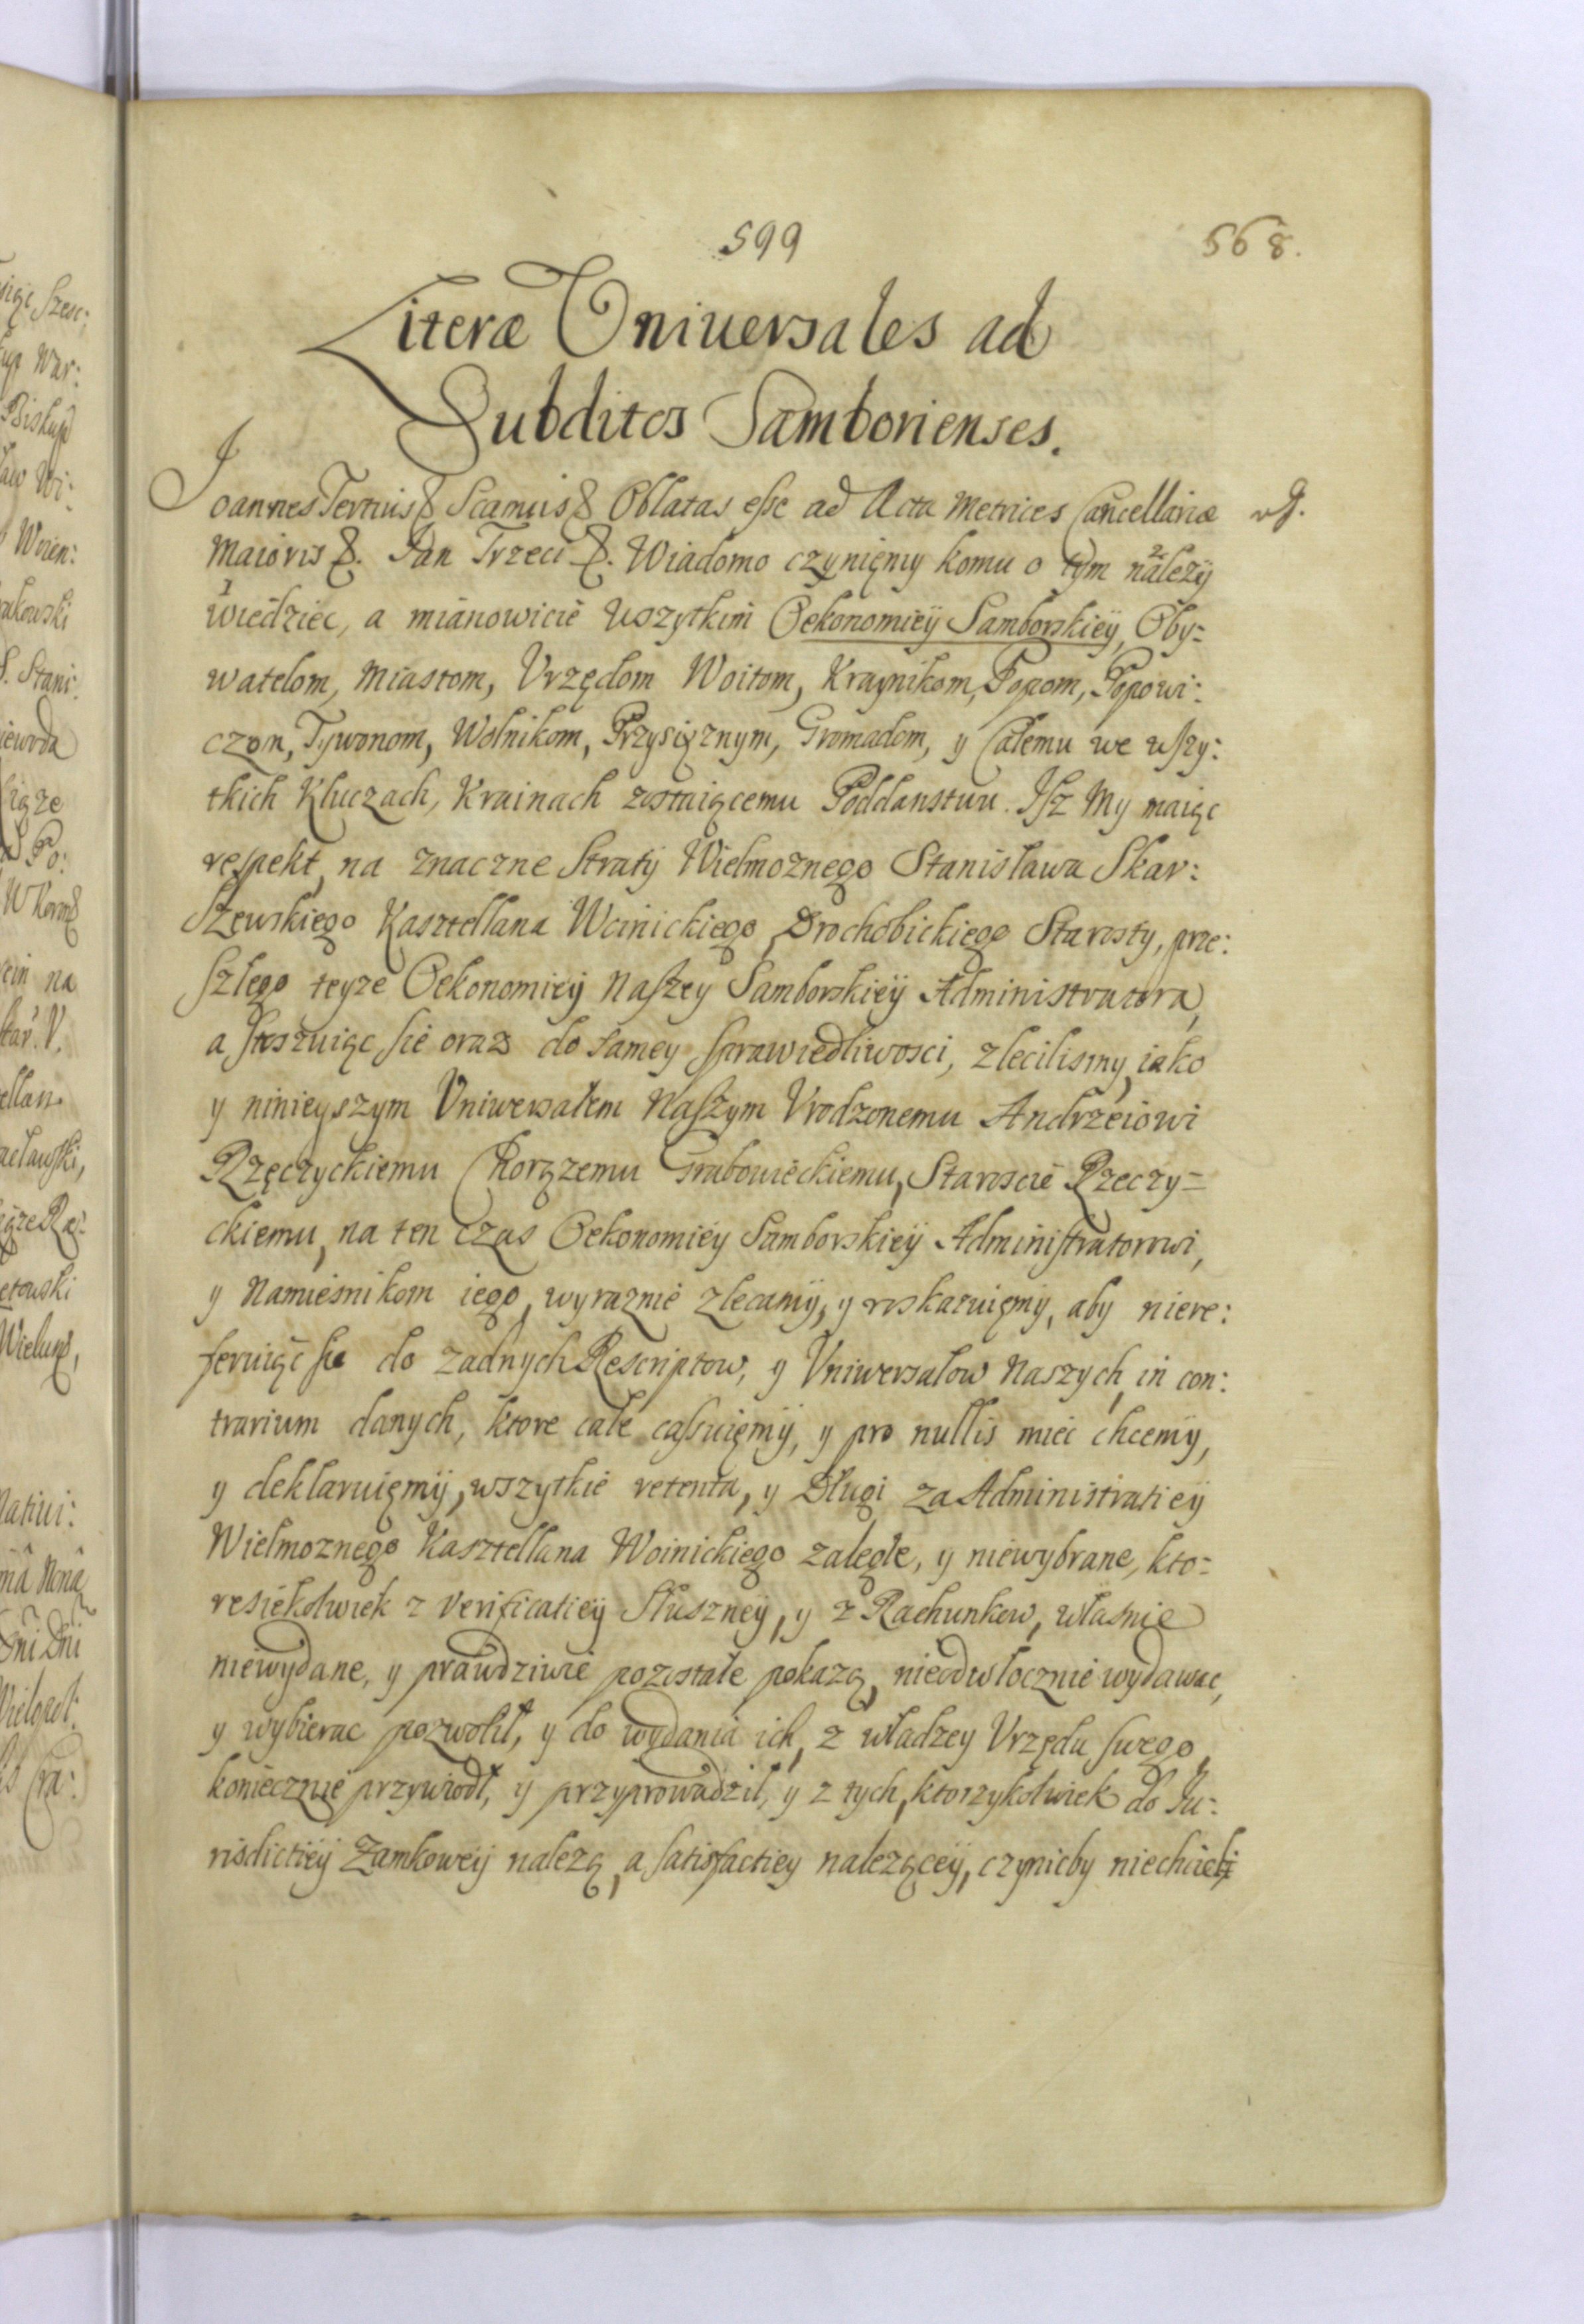 599
568.
Literæ Vniuersales ad
Subditos Samborienses.
Joannes Tertius & Scamus & Oblatas esse ad Acta Metrices Cancellariæ
Maioris &. Jan Trzeci &. Wiadomo czynięmy komu o tym 2 należÿ
1 wiedziec, a mianowicie wszytkim Oekonomieÿ Samborskieÿ, Oby=
watelom, Miastom, Vrzędom Woitom, Kraynikom, Popom, Popowi:
czom, Tywonom, Wolnikom, Przysiężnym, Gromadom, y Całemu we wszy:
tkich Kluczach, Krainach zostaiącemu Poddanstwu. Isz My maiąc
respekt, na znaczne Stratÿ Wielmoznego Stanisława Skar:
Szewskiego Kasztellana Woinickiego, Drochobickiego Starosty, prze:
szłego teyze Oekonomieÿ Naszey Samborskieÿ Administratora,
a stoszuiąc sie oraz do samey sprawiedliwosci, zlecilismy, iako
y ninieyszym Vniwersałem Naszym Vrodzonemu Andrzeiowi
Rzęczyckiemu Chorązemu Grabowieckiemu, Staroscie Rzeczy=
ckiemu, na ten czas Oekonomiey Samborskieÿ Administratorowi,
y Namiesnikom iego, wyraznie zlecamÿ, y roskazuięmÿ, aby niere:
feruiąc sie do zadnych Rescriptow, y Vniwersałow Naszych, in con:
trarium danych, ktore cale cassuięmÿ, y pro nullis miec chcemÿ,
y deklaruięmÿ, wszytkie retenta, y Długi za Administratieÿ
Wielmoznego Kasztellana Woinickiego zaległe, y niewybrane, kto=
resiekolwiek z verificatieÿ Słuszneÿ, y z Rachunkow, własnie
niewydane, y prawdziwie pozostałe pokazą, nieodwłocznie wydawac,
y wybierac pozwolił, y do wydania ich, z władzey Vrzędu swego,
koniecznie przywiodł, y przyprowadził, y z tych, ktorzykolwiek do Ju:
risdictieÿ Zamkoweÿ nalezą, a satisfactiey naleząceÿ, czynicby niechcieli